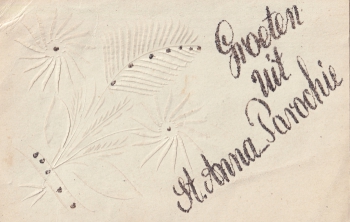 Groeten
uit
St. Anna Parochie